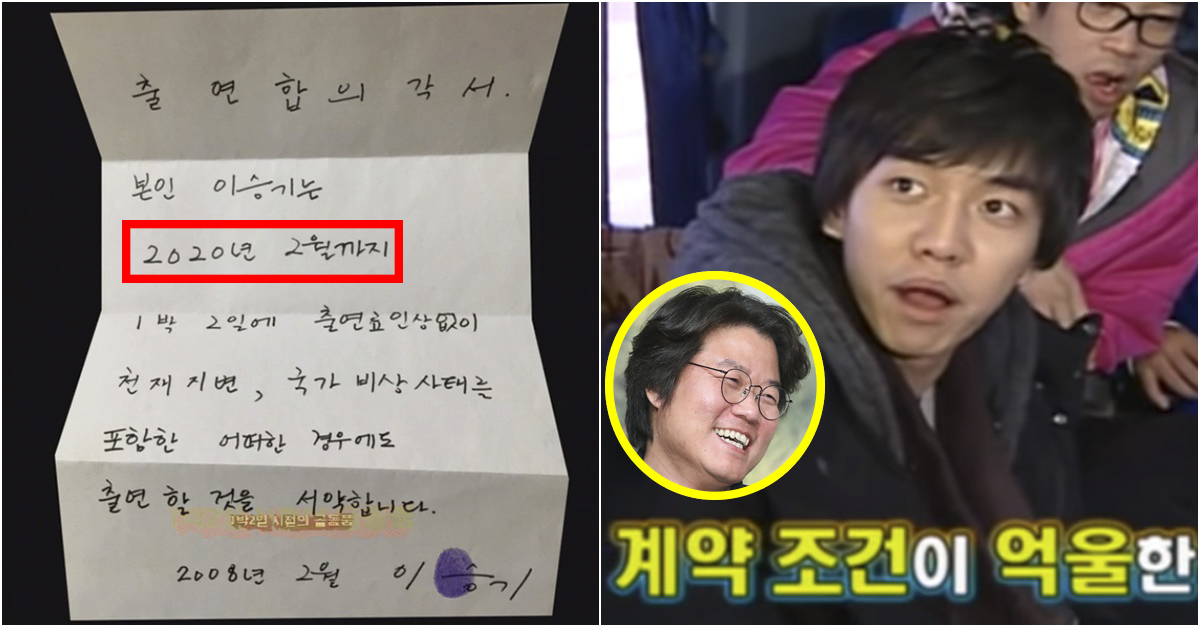 출연합의각서.
본인 이승기는
2020년 2월까지
1박 2일에 출연료인상없이
천재지변, 국가비상사태를
포함한 어떠한 경우에도
출연 할 것을 서약합니다.
1박2일 시절의 골동품
2008년 2월 이승기
계약 조건이 억울한